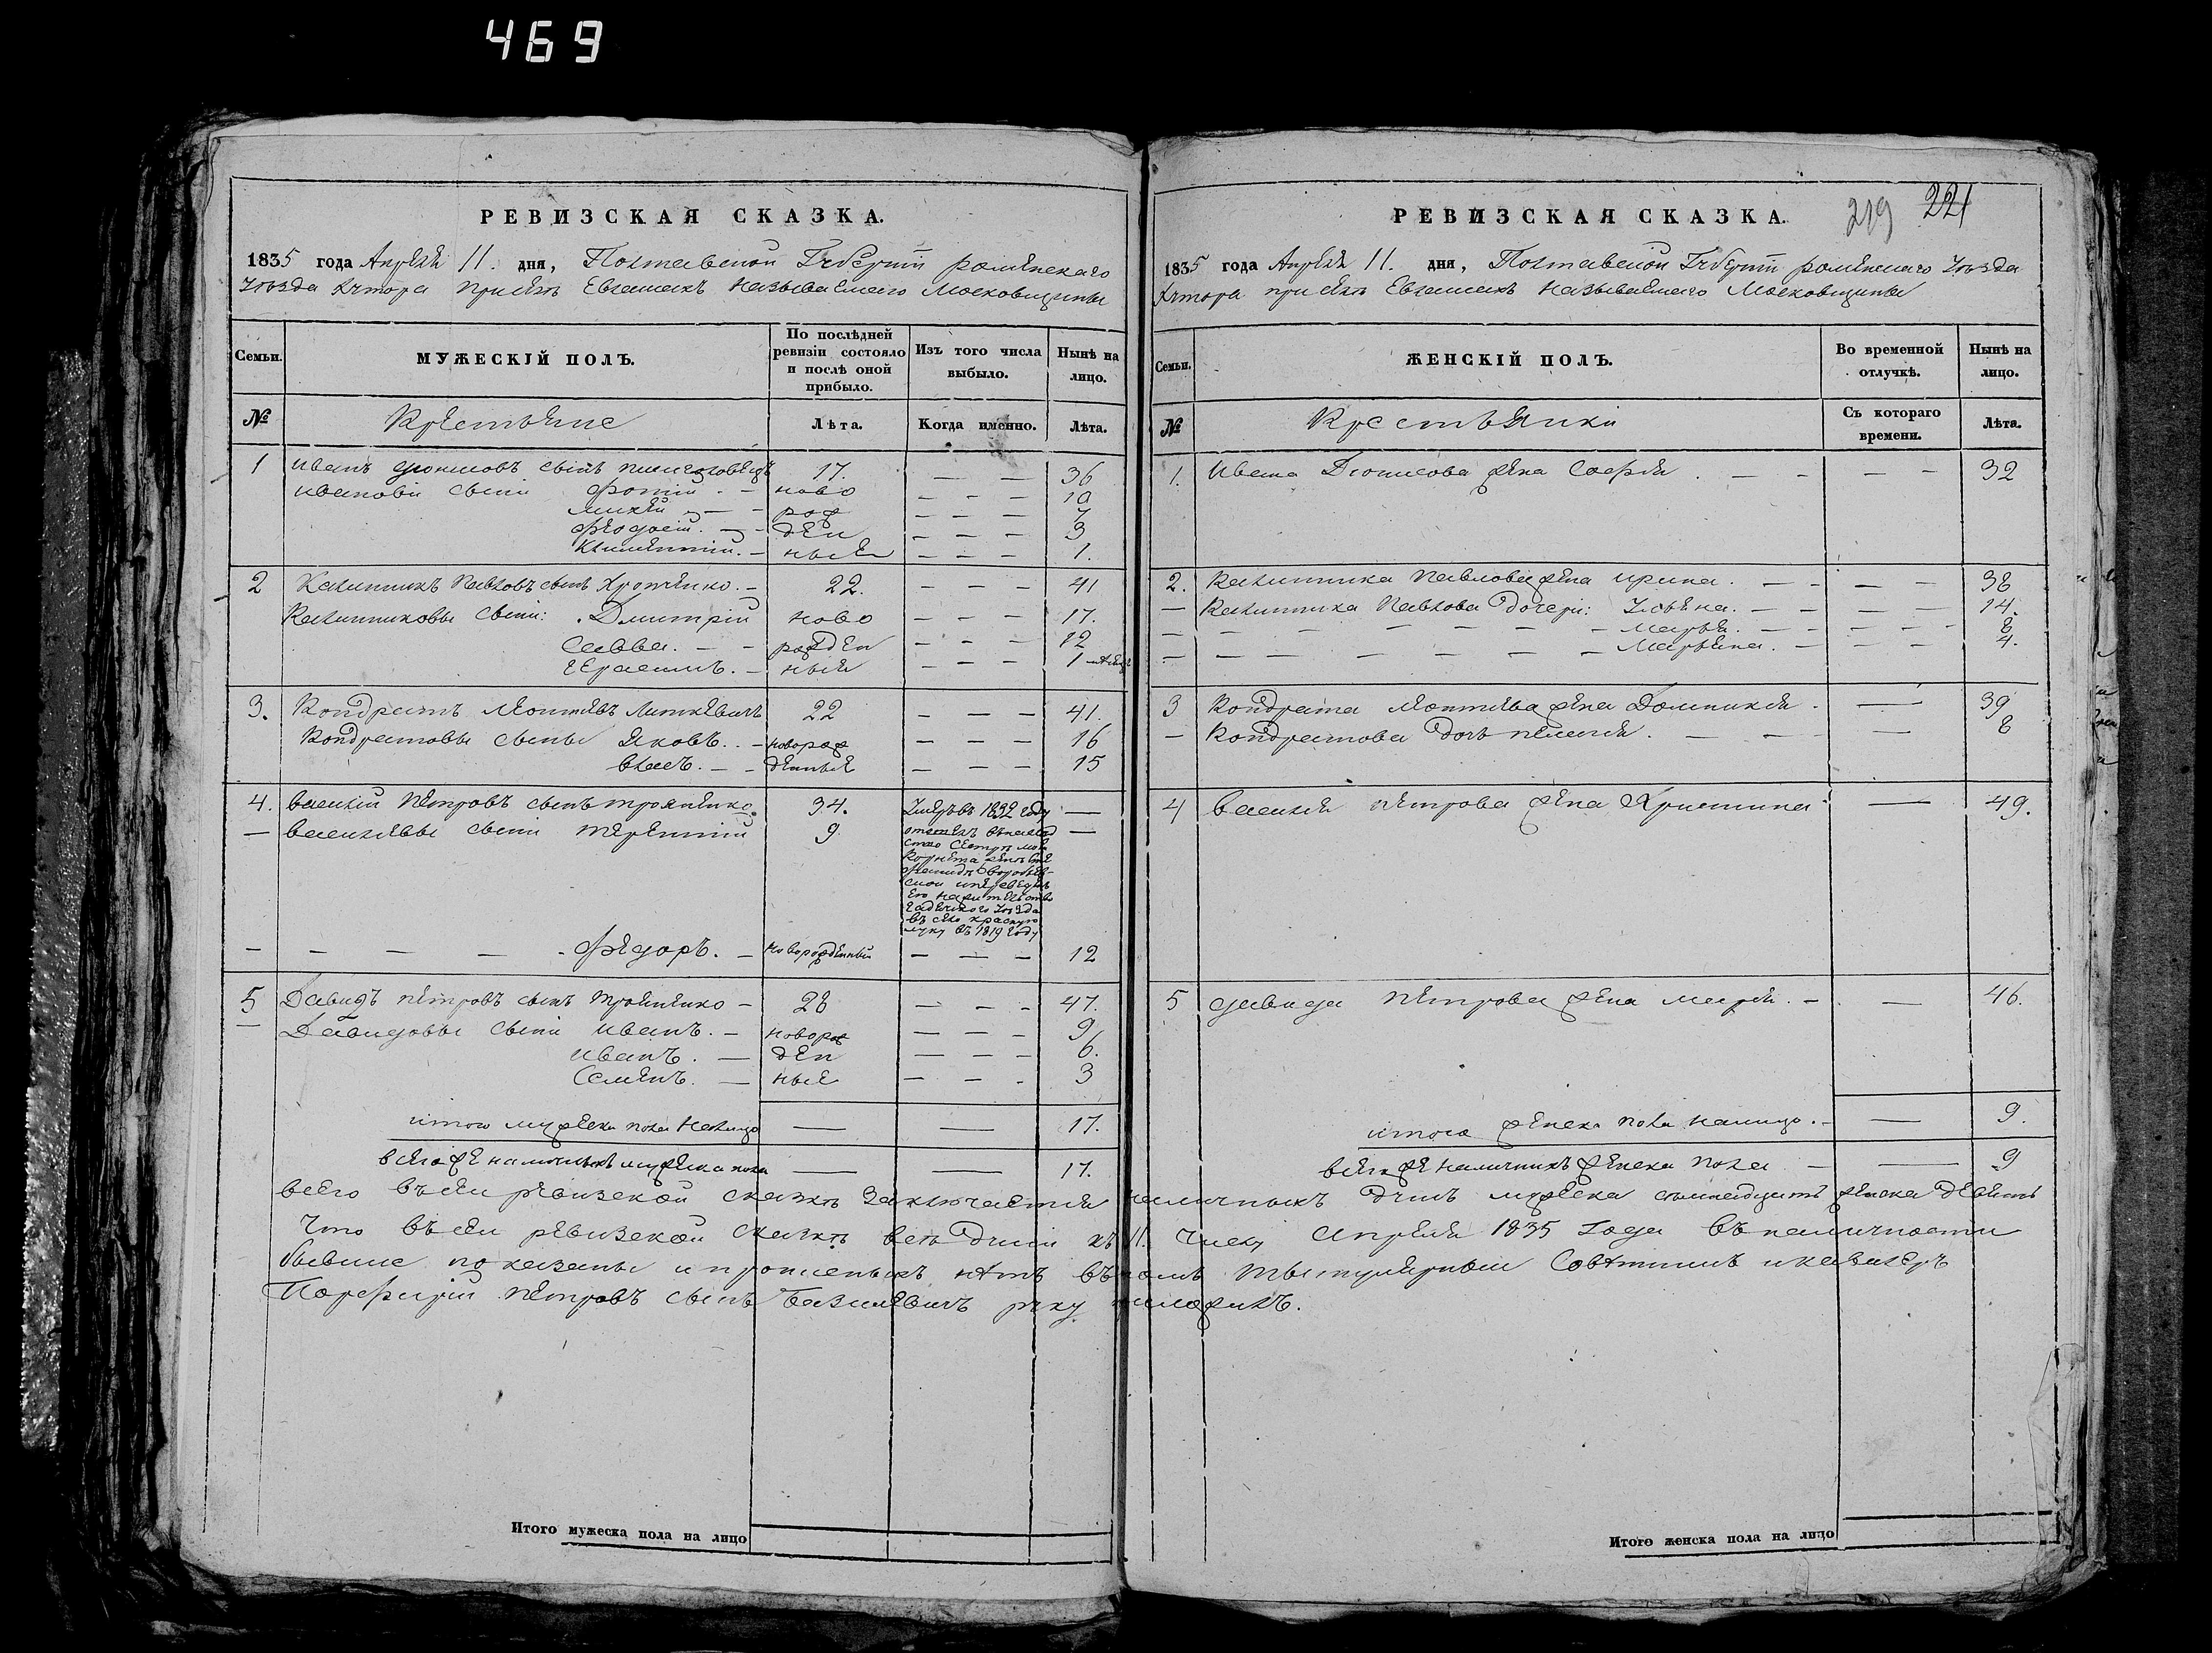 469
РЕВИЗСКАЯ СКАЗКА.
1835 года Апреля 11. дня, Полтавской Губернии роменскаго
Уѣзда хутора при селѣ Евлашахъ называемаго Московщины
Семьи. МУЖЕСКІЙ ПОЛЪ. По послѣдней ревизіи состояло и послѣ оной прибыло. Изъ того числа выбыло. Нынѣ на лицо.
№ Крестьяне Лѣта. Когда именно. Лѣта.
1 Иванъ сынъ 17. — — 36
ивановы сыны Фотій. — ново — — — 10
Михей — — рож — — — 7
Феодосій. — — ден — — — 3
Климентій. — ные — — — 1.
2 Калинникъ Павловъ сынъ — 22. — — — 41
Калинниковы сыны: Дмитрій ново — — — 17.
Савва. — — рожден — — — 12
Герасимъ. — ные — — — 1
3. Кондратъ Леонтьевъ 22 — — — 41.
Кондратовы сыны Яковъ. — новорож — — — 16
Власъ. — — денные — — — 15
4. Василій Петровъ сынъ трояненко. 34. Умеръ въ 1832 году —
— Васильевы сыны Терентій 9 —
ство сестрѣ
Корнета женѣ
его на жительство
Гадячскаго Уѣзда
въ село красную
луку въ 1819 году
— — — — Федоръ. — Новорожденный — — — 12
5 Давидъ Петровъ сынъ Трояненко — 28 — — — 47.
— Давидовы сыны Иванъ. — новорож — — — 9
Иванъ. — ден — — — 6.
Семенъ. — ные — — - 3
итого мужеска пола налицо — — 17.
всего же наличныхъ мужеска пола — — 17.
Итого мужеска пола на лицо
219 221
РЕВИЗСКАЯ СКАЗКА.
1835 года Апреля 11. дня, Полтавской Губернии роменскаго Уѣзда
хутора при селѣ Евлашахъ называемаго Московщины
Семьи. ЖЕНСКІЙ ПОЛЪ. Во временной отлучкѣ. Нынѣ на лицо.
№ Крестьянки Съ котораго времени. Лѣта.
1. Ивана жена Софья. — - — — 32
2. Калинника Павлова жена Ирина. — - — — 38
— Калинника Павлова дочери: Ульяна. — — — — 14.
— — — — — — — Марья. — — — — 8
— — — — — — — Марьяна. — — — — 4.
3 Кондрата Леонтьева жена Домникія. — 39
— Кондратова дочь Пелагея. — — — 8
4 Василія Петрова жена Христина — 49.
5 Давида Петрова жена Марія. — — 46.
итого женска пола налицо. — — 9.
всего же наличныхъ женска пола — — 9
всего въ сей ревизской сказкѣ заключается наличныхъ душъ мужеска семнадцать женска девять
Что въ сей ревизской сказкѣ всѣ души къ 11. числу апреля 1835 года въ наличности
бывшие показаны и прописныхъ нѣтъ въ томъ Титулярный Совѣтникъ и кавалеръ
Порфирій Петровъ сынъ Базилевичъ руку приложилъ.
Итого женска пола на лицо